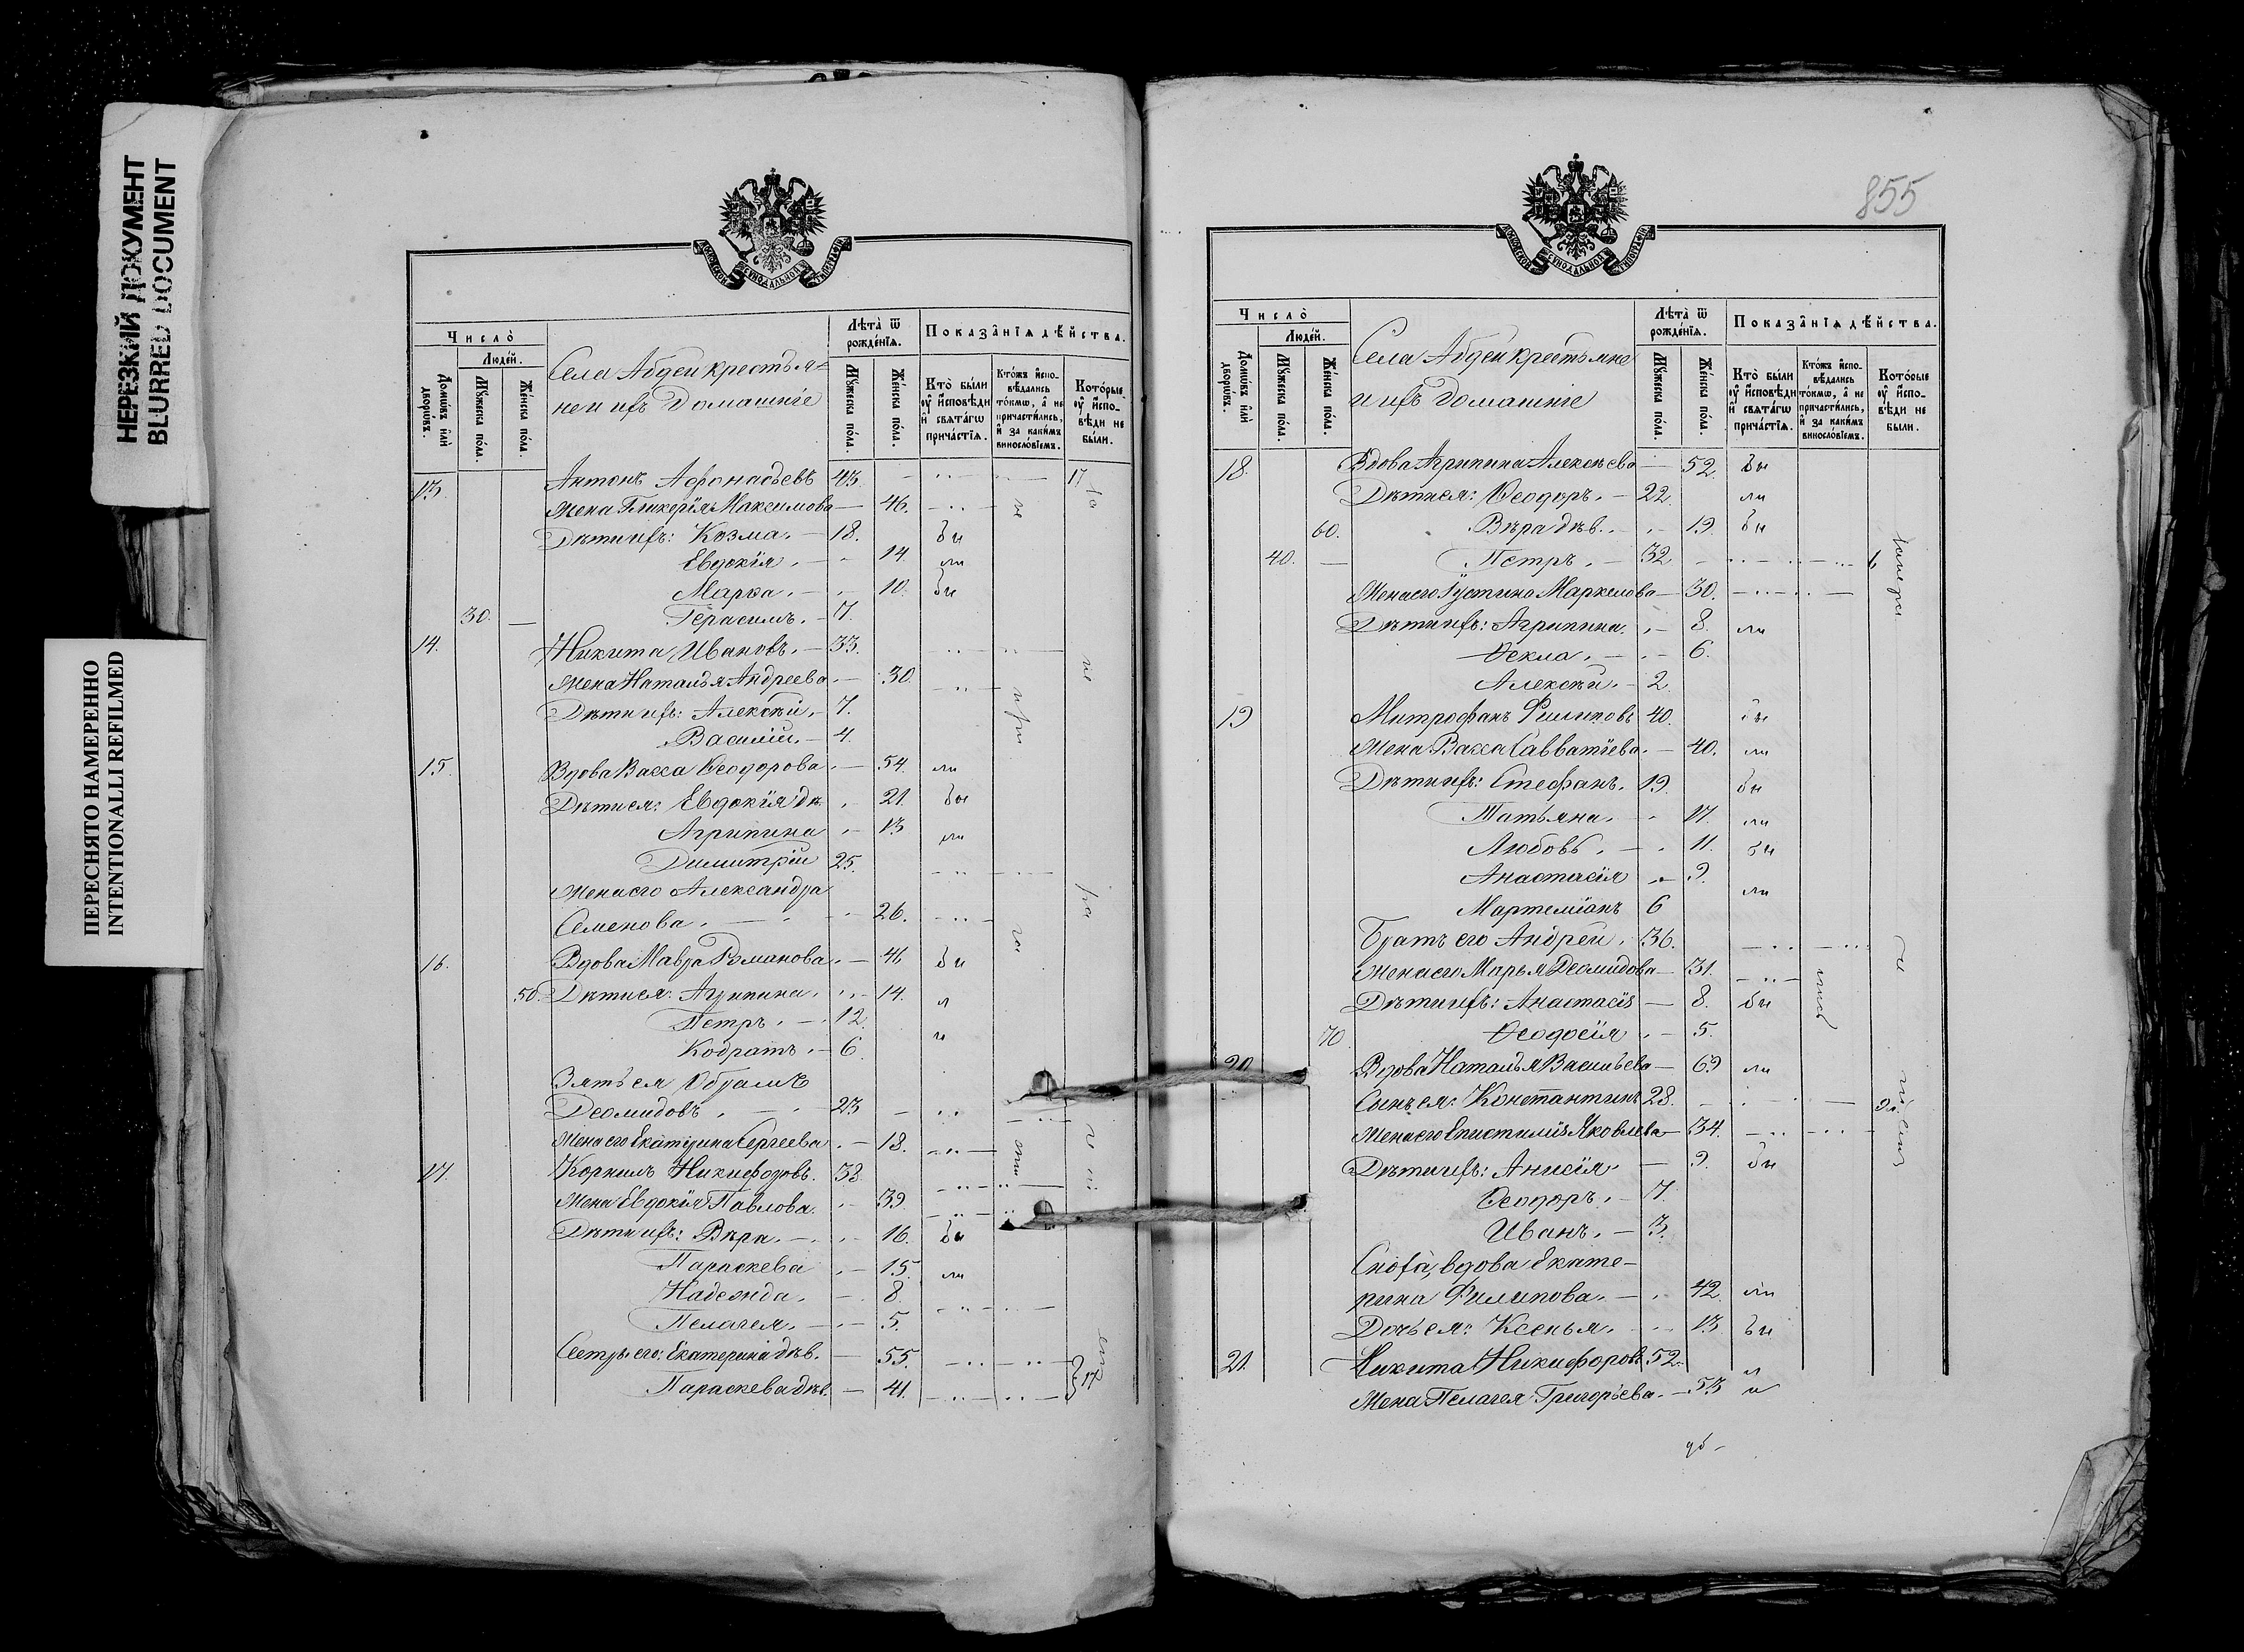 НЕРЕЗКИЙ ДОКУМЕНТ
BLURRED DOCUMENT
ПЕРЕСНЯТО НАМЕРЕННО
INTENTIONALLI REFILMED
Число̀
Людей.
Домѡвъ или дворѡвъ.
Мꙋжеска пола.
Женска пола.
Села Абдеи крестья-
не и ихъ домашніе
Лѣта̀ ѿ рожденїѧ.
Мꙋжеска пола.
Женска пола.
Показанїѧ дѣйства.
Кто̀ были оу̓ исповѣди и свѧтагѡ причастїѧ.
Ктожъ исповѣдались токмѡ, а не причастились, и за какимъ винословїемъ.
Которые оу̓ исповѣди не были.
13. Антонъ Афонасьевъ 43. 17
Жена Гликерія Максимова — 46.
Дѣти ихъ: Козма. — 18. бы
Евдокія. — 14. ли
Марѳа. — 10. бы
30. — Герасимъ. — 7.
14. Никита Ивановъ. — 33.
Жена Наталья Андреева — 30.
Дѣти ихъ: Алексѣй. — 7.
Василій. — 4.
15. Вдова Васса Ѳеодорова. — 54. ли
Дѣти ея: Евдокія дѣ. 21. бы
Агрипина — 13 ли
Димитрій 25.
Жена его Александра
Семенова. — 26.
16. Вдова Мавра Романова. — 46 бы
50. Дѣти ея: Агрипина. — 14. л
Петръ. — 12. и
Кодратъ. — 6.
Зять ея
Деомидовъ. — 23
Жена его Екатерина Сергеева. — 18.
17. Корнилъ Никифоровъ. 38.
Жена Евдокія Павлова. — 39
Дѣти ихъ: Вѣра. — 16. бы
Параскева — 15. ли
Надежда. — 8.
Пелагея. — 5.
Сестры его: Екатерина дѣв. — 55.
Параскева дѣв. — 41. 17
855
Число̀
Людей.
Домѡвъ или дворѡвъ.
Мꙋжеска пола.
Женска пола.
Села Абдеи крестьяне
и ихъ домашніе
Лѣта̀ ѿ рожденїѧ.
Мꙋжеска пола.
Женска пола.
Показанїѧ дѣйства.
Кто̀ были оу̓ исповѣди и свѧтагѡ причастїѧ.
Ктожъ исповѣдались токмѡ, а не причастились, и за какимъ винословїемъ.
Которые оу̓ исповѣди не были.
18. Вдова Агрипина Алексѣева — 52. бы
Дѣти ея: Ѳеодоръ. — 22. ли
60. Вѣра дѣв. — 19. бы
40. — Петръ. — 32
Жена его Іустина Маркелова — 30.
Дѣти ихъ: Агрипина. — 8. ли
Ѳекла. — 6.
Алексѣй. — 2.
19 Митрофанъ Филиповъ 40. бы
Жена Васса Савватіева. — 40. ли
Дѣти ихъ: Стефанъ. 19. бы
Татьяна. — 17. ли
Любовь. — 11. бы
Анастасія — 9. ли
Мартеміанъ 6
Братъ его Андрей. 36.
Жена его Марья Деомидова — 31.
Дѣти ихъ: Анастасія — 8. бы
70. Ѳеодосія — 5.
20 Вдова Наталья Васильева — 69 ли
Сынъ ея: Константинъ 28.
Жена его Епистимія Яковлева — 34.
Дѣти ихъ: Анисія. — 9. бы
Ѳеодоръ. — 7.
Иванъ. — 3.
Сноха, вдова Екате-
рина Филипова. — 42. ли
Дочь ея: Ксенья. — 13 бы
21. Никита Никифоровъ 52. л
Жена Пелагея Григорьева. — 53 и